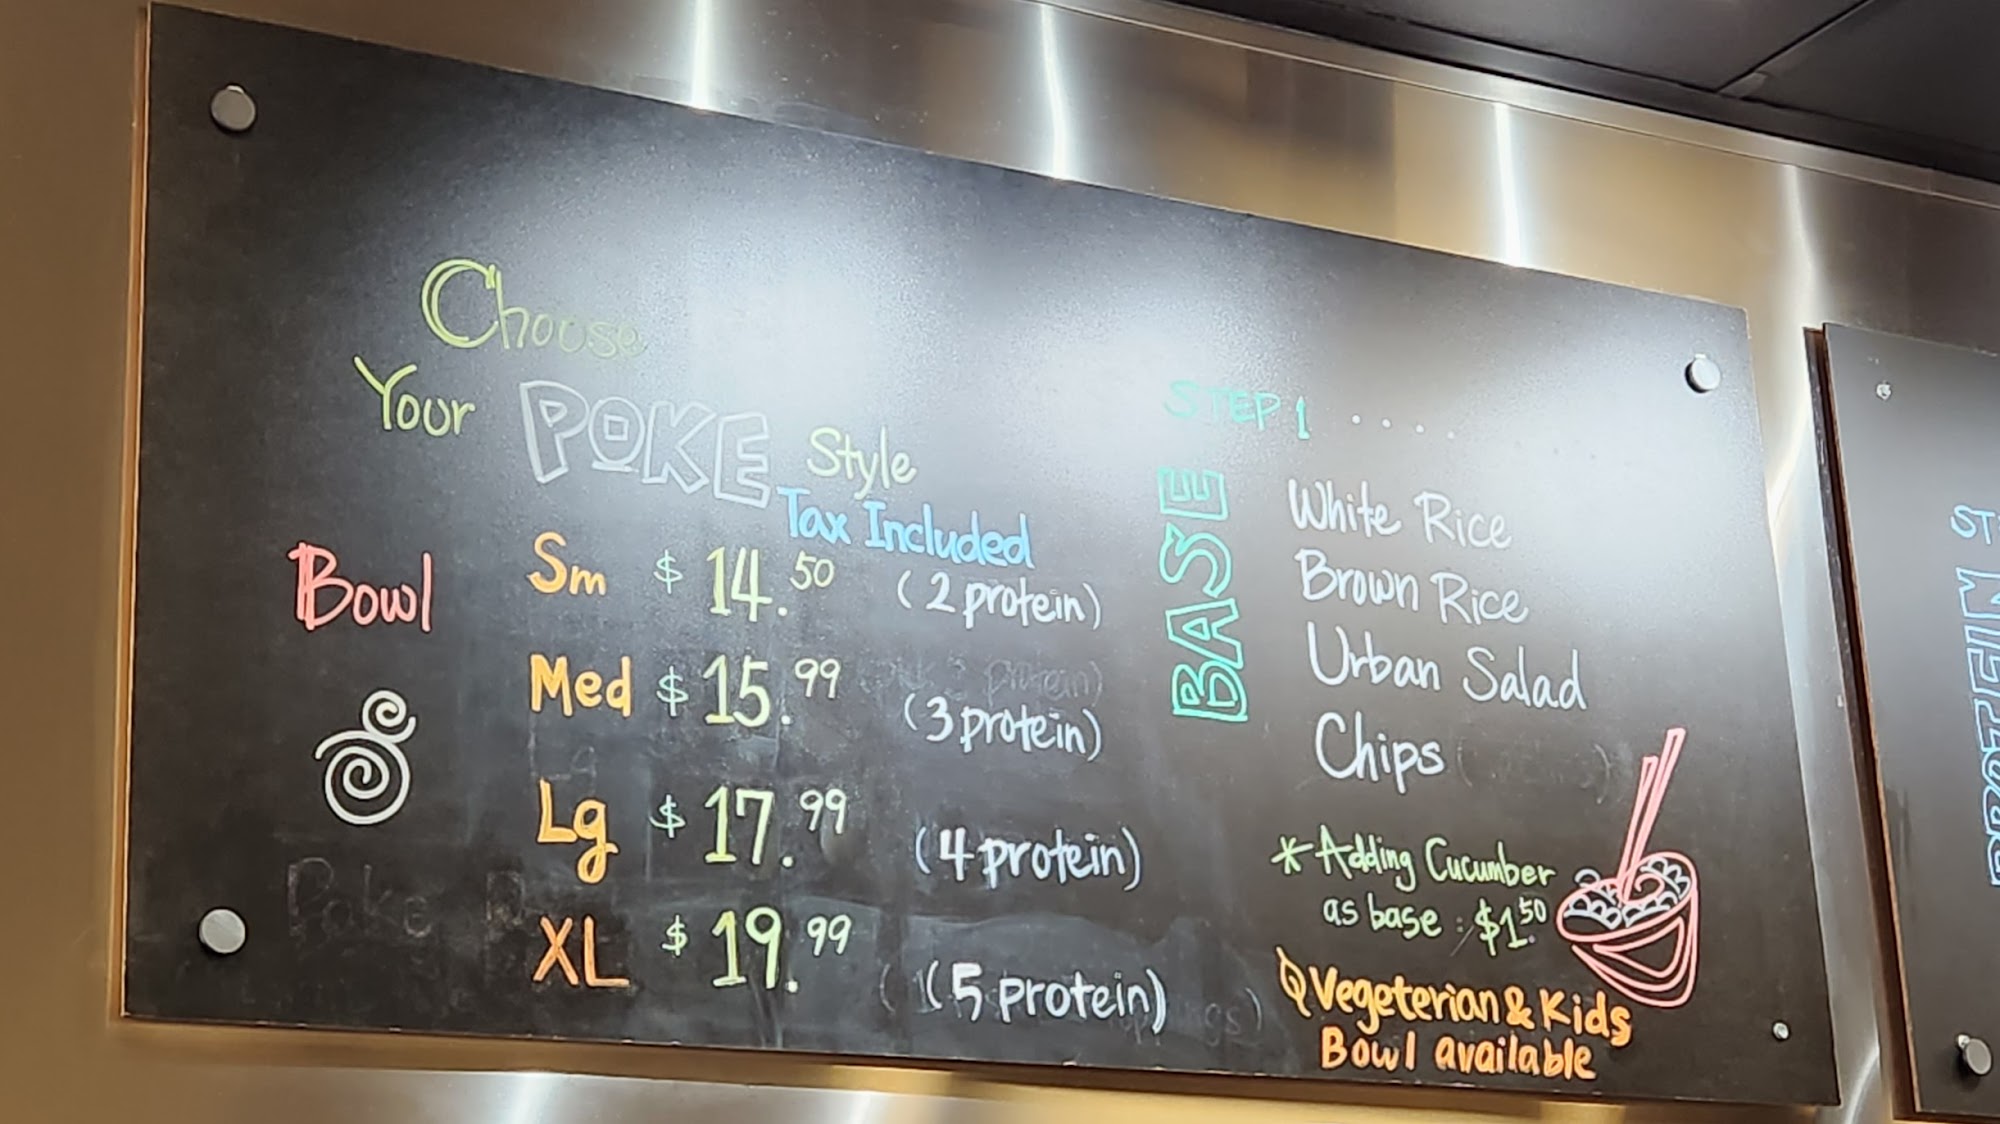 Choose
Your POKE Style
Tax Included
Bowl
Sm $ 14.50 (2 protein)
Med $ 15.99 (3 protein)
Lg $ 17.99 (4 protein)
XL $ 19.99 (5 protein)
STEP 1 ....
BASE
White Rice
Brown Rice
Urban Salad
Chips
*Adding Cucumber
as base : $1.50
Vegeterian & Kids
Bowl available
ST
PROTEIN